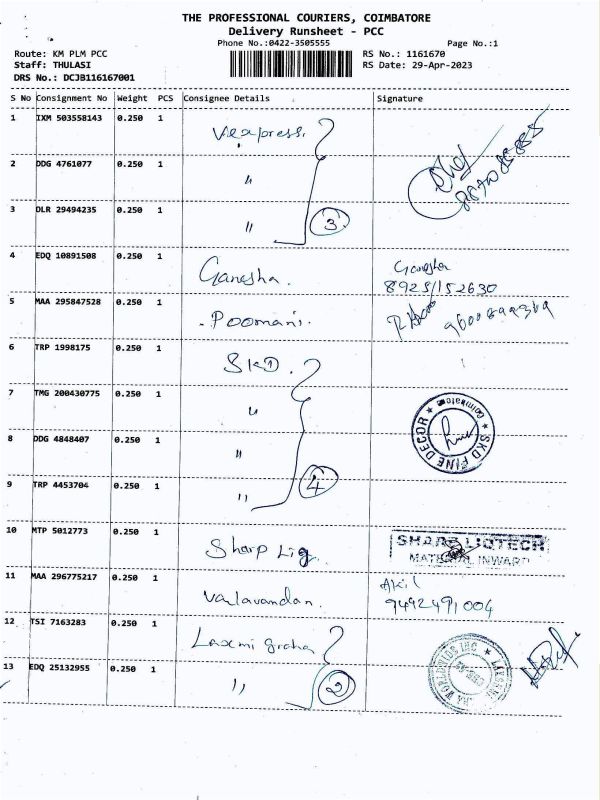 THE PROFESSIONAL COURIERS, COIMBATORE
Delivery Runsheet - PCC
Phone No.:0422-3505555
Page No.:1
Route: KM PLM PCC
Staff: THULASI
DRS No.: DCJB116167001
RS No.: 1161670
RS Date: 29-Apr-2023
S No Consignment No Weight PCS Consignee Details Signature
1 IXM 503558143 0.250 1
2 DDG 4761077 0.250 1 "
3 DLR 29494235 0.250 1 " 3
4 EDQ 10891508 0.250 1 Ganesha. Ganesha
8925152630
5 MAA 295847528 0.250 1 Poomani.
6 TRP 1998175 0.250 1 SKD
7 TMG 200430775 0.250 1 "
8 DDG 4848407 0.250 1 "
9 TRP 4453704 0.250 1 " 4
SKD FINE DECOR ★ Coimbatore ★
10 MTP 5012773 0.250 1 Sharp Liq. SHARP LIQTECH
MATERIAL INWARD
11 MAA 296775217 0.250 1 Valavandan. Akil
9492491004
12 TSI 7163283 0.250 1 Laxmi graha
13 EDQ 25132955 0.250 1 " 2